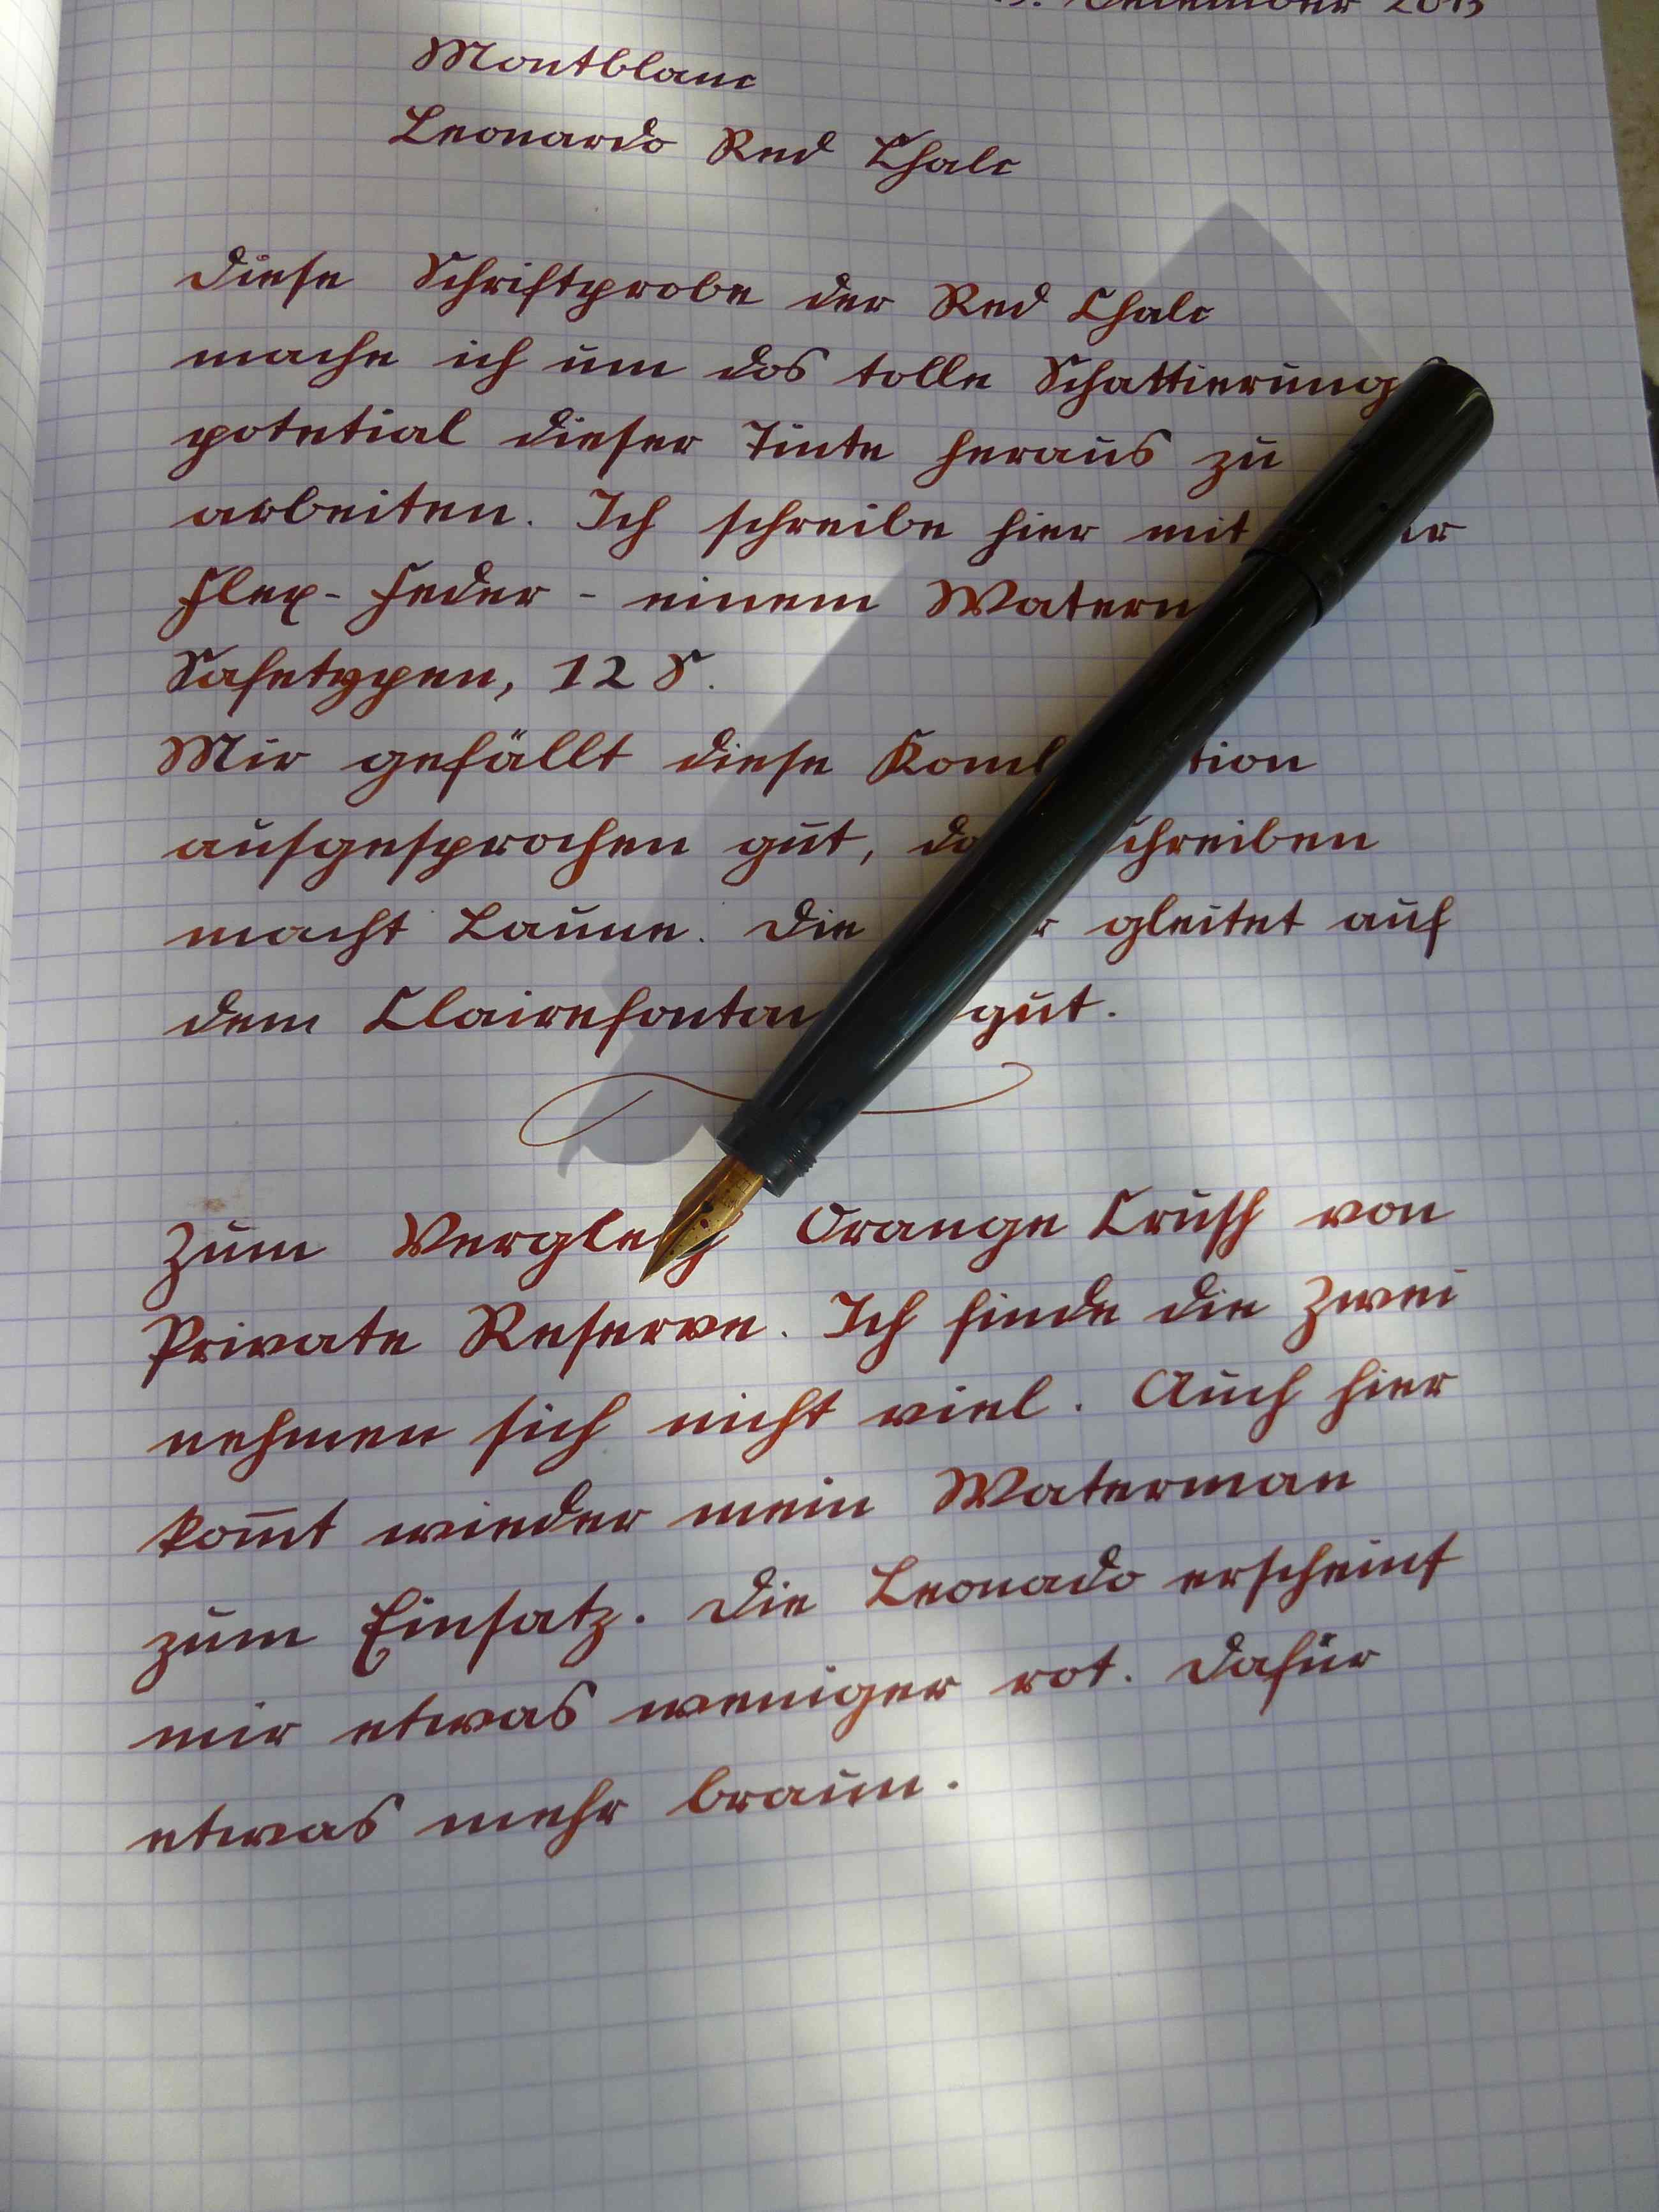 Dezember 2013
Montblanc
Leonardo Red Chalc
Diese Schriftprobe der Red Chalc
mache ich um das tolle Schattierung
potetial dieser Tinte heraus zu
arbeiten. Ich schreibe hier mit
Flex- Feder - einem Waterm
Safetypen, 12 S.
Mir gefällt diese Komb tion
ausgesprochen gut, da chreiben
macht Laune. Die r gleitet auf
dem Clairefontai gut.
Zum Vergleich Orange Crush von
Private Reserve. Ich finde die zwei
nehmen sich nicht viel. Auch hier
kom̄t wieder mein Waterman
zum Einsatz. Die Leonado erscheint
mir etwas weniger rot. Dafür
etwas mehr braun.